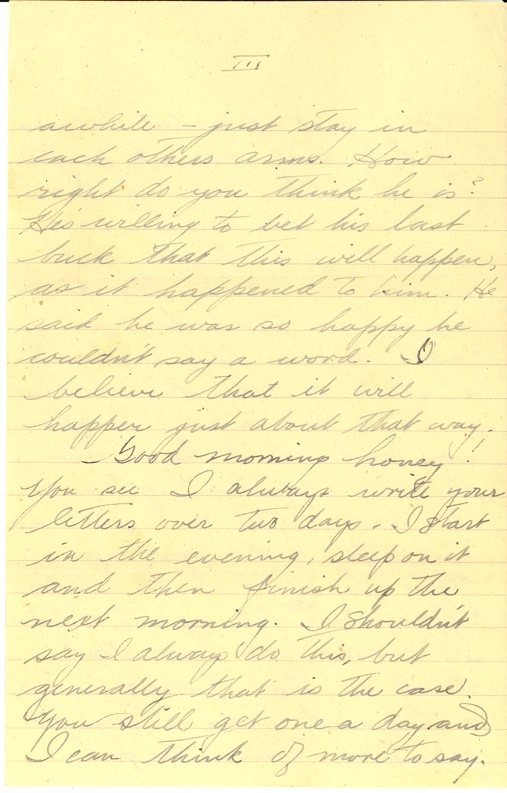 III
awhile – just stay in
each others arms. How
right do you think he is?
He's willing to bet his last
buck that this will happen,
as it happened to him. He
said he was so happy he
couldn't say a word. I
believe that it will
happen just about that way.
Good morning honey!
You see I always write your
letters over two days. I start
in the evening, sleep on it
and then finish up the
next morning. I shouldn't
say I always do this, but
generally that is the case.
You still get one a day and
I can think of more to say.